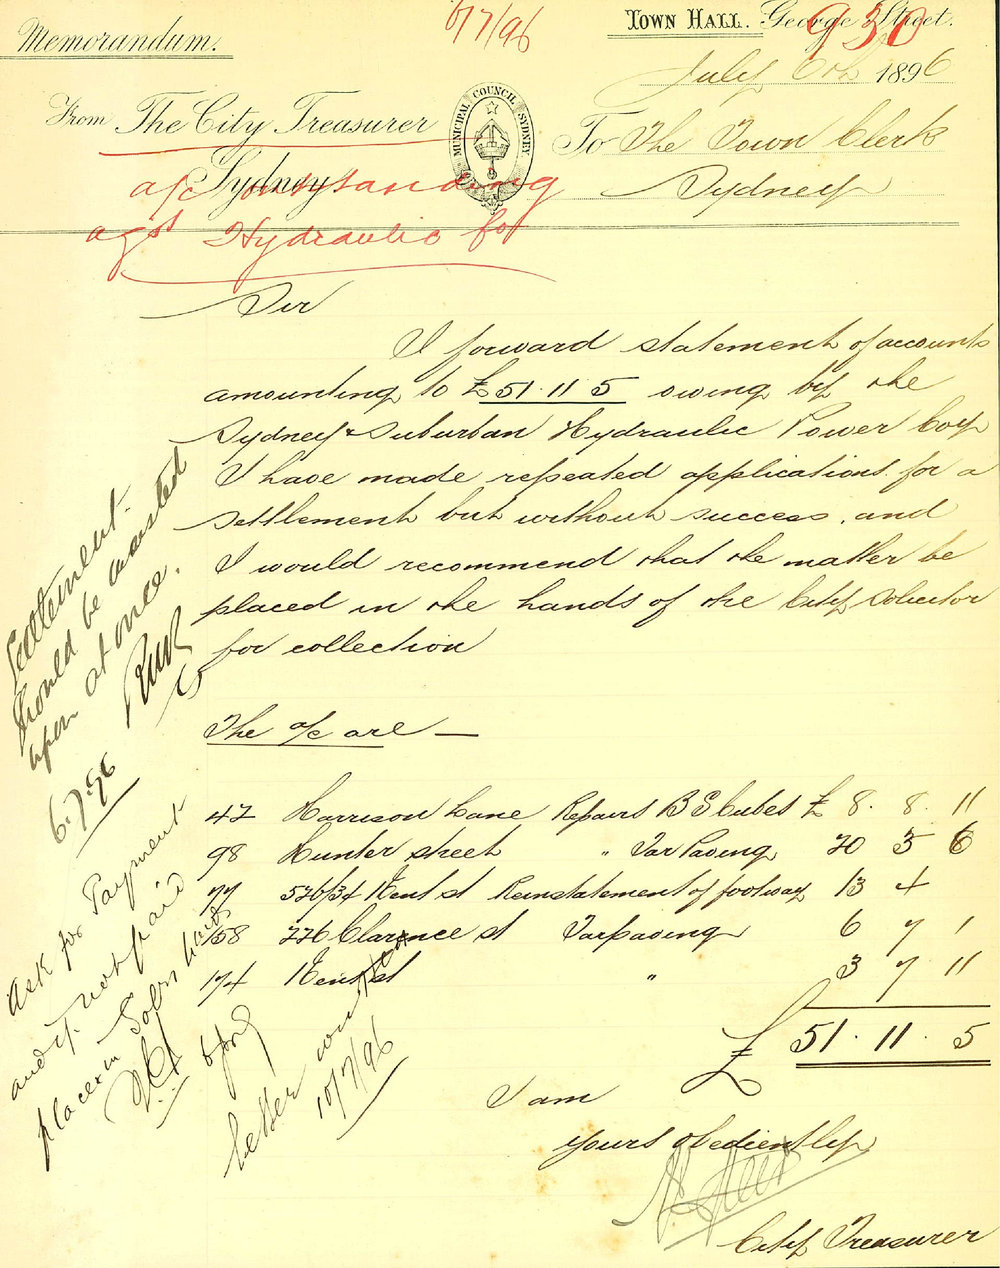 6/7/96
930
Memorandum.
Town Hall. George Street.
July 6th 1896
From The City Treasurer
Sydney
MUNICIPAL COUNCIL SYDNEY
To The Town Clerk
Sydney
a/c outstanding
agst Hydraulic Co
Sir
I forward statement of accounts
amounting to £51.11.5 owing by the
Sydney & Suburban Hydraulic Power Coy
I have made repeated applications for a
settlement but without success, and
I would recommend that the matter be
placed in the hands of the City Solicitor
for collection
The a/c are —
47 Harrison Lane Repairs B G Cubes £ 8. 8. 11
98 Hunter street " Tar Paving 20 3 6
77 526/34 Kent st Reinstatement of footway 13 4
158 226 Clarence st Tarpaving 6 7 1
174 Kent st " 3 7 11
£ 51. 11. 5
I am
yours obediently
City Treasurer
Settlement
should be insisted
upon at once.
6.7.96
Ask for Payment
and if not paid
place in Solrs hands
letter written
10/7/96